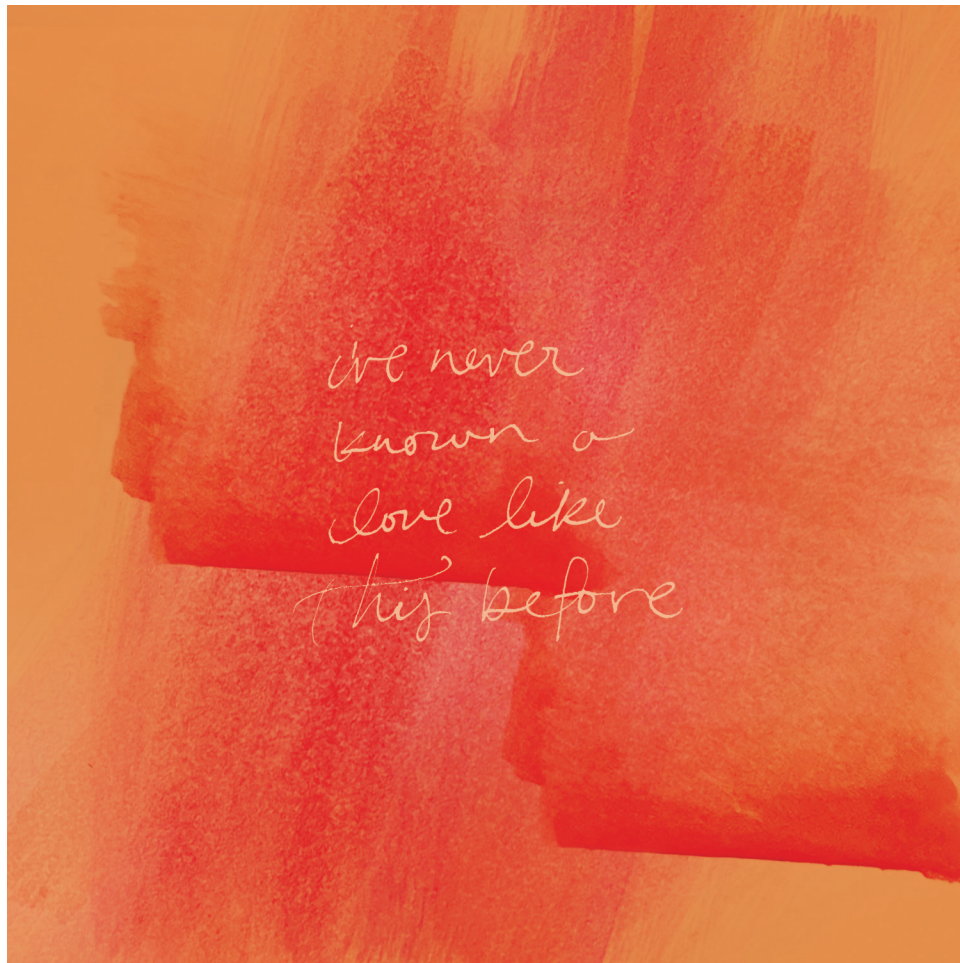 i've never
known a
love like
this before